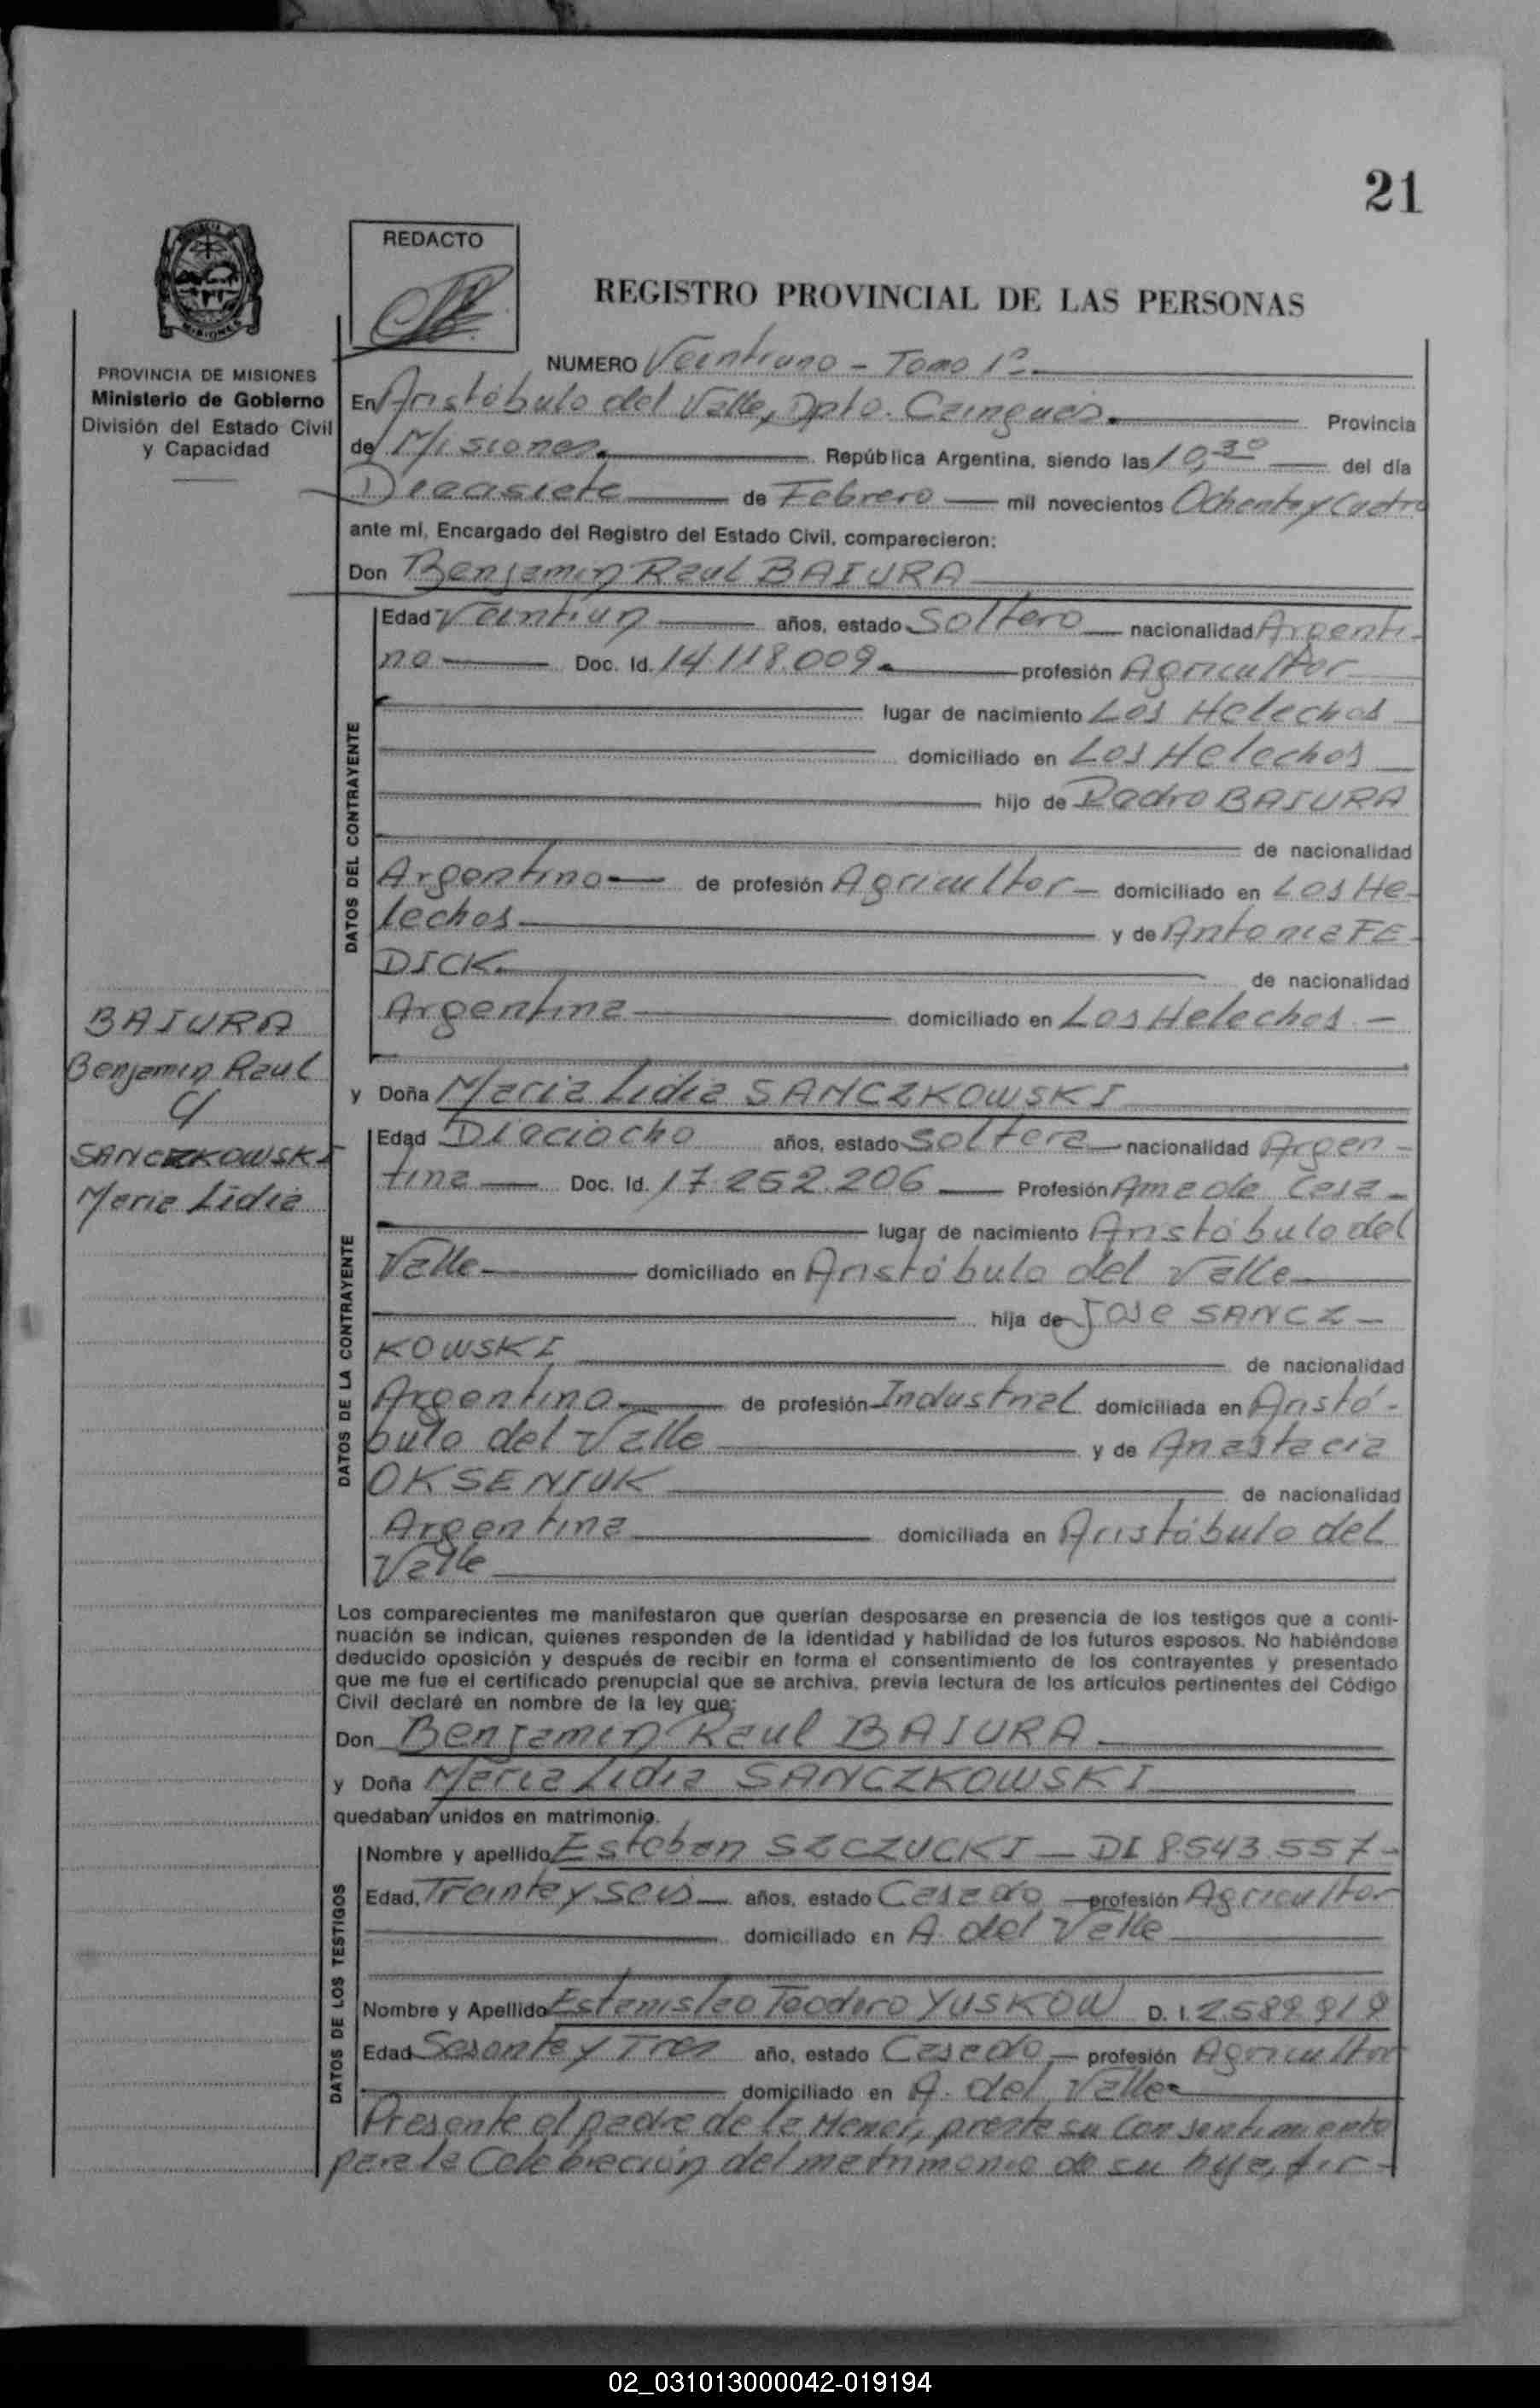 21
REDACTO
REGISTRO PROVINCIAL DE LAS PERSONAS
MISIONES
PROVINCIA DE MISIONES
Ministerio de Gobierno
División del Estado Civil
y Capacidad
NUMERO Veintiuno - Tomo 1º
En Aristóbulo del Valle, Dpto. Cainguás. Provincia
de Misiones. República Argentina, siendo las 10,30 del día
Diecisiete de Febrero mil novecientos Ochenta y Cuatro
ante mí, Encargado del Registro del Estado Civil, comparecieron:
Don Benjamin Raul BAIURA
DATOS DEL CONTRAYENTE
Edad Veintiun años, estado Soltero nacionalidad Argenti-
no Doc. Id. 14.118.009 profesión Agricultor
lugar de nacimiento Los Helechos
domiciliado en Los Helechos
hijo de Pedro BAIURA
de nacionalidad
Argentino de profesión Agricultor - domiciliado en Los He-
lechos y de Antonia FE-
DICK de nacionalidad
Argentina domiciliado en Los Helechos -
BAIURA
Benjamin Raul
y
SANCZKOWSKI
Maria Lidia
y Doña Maria Lidia SANCZKOWSKI
DATOS DE LA CONTRAYENTE
Edad Dieciocho años, estado Soltera nacionalidad Argen-
tina Doc. Id. 17.252.206 Profesión Ama de Casa -
lugar de nacimiento Aristóbulo del
Valle domiciliado en Aristóbulo del Valle
hija de Jose SANCZ-
KOWSKI de nacionalidad
Argentino de profesión Industrial domiciliada en Aristó-
bulo del Valle y de Anastacia
OKSENIUK de nacionalidad
Argentina domiciliada en Aristóbulo del
Valle
Los comparecientes me manifestaron que querían desposarse en presencia de los testigos que a conti-
nuación se indican, quienes responden de la identidad y habilidad de los futuros esposos. No habiéndose
deducido oposición y después de recibir en forma el consentimiento de los contrayentes y presentado
que me fue el certificado prenupcial que se archiva, previa lectura de los artículos pertinentes del Código
Civil declaré en nombre de la ley que:
Don Benjamin Raul BAIURA
y Doña Maria Lidia SANCZKOWSKI
quedaban unidos en matrimonio.
DATOS DE LOS TESTIGOS
Nombre y apellido Esteban SZCZUCKI - DI 8.543.557-
Edad, Treinta y seis años, estado Casado profesión Agricultor
domiciliado en A. del Valle
Nombre y Apellido Estanislao Teodoro YUSKOW D. I. 2.589.919
Edad Sesenta y Tres año, estado Casado profesión Agricultor
domiciliado en A. del Valle
Presente el padre de la Menor, presta su consentimiento
para la Celebración del matrimonio de su hija, fir-
02_031013000042-019194